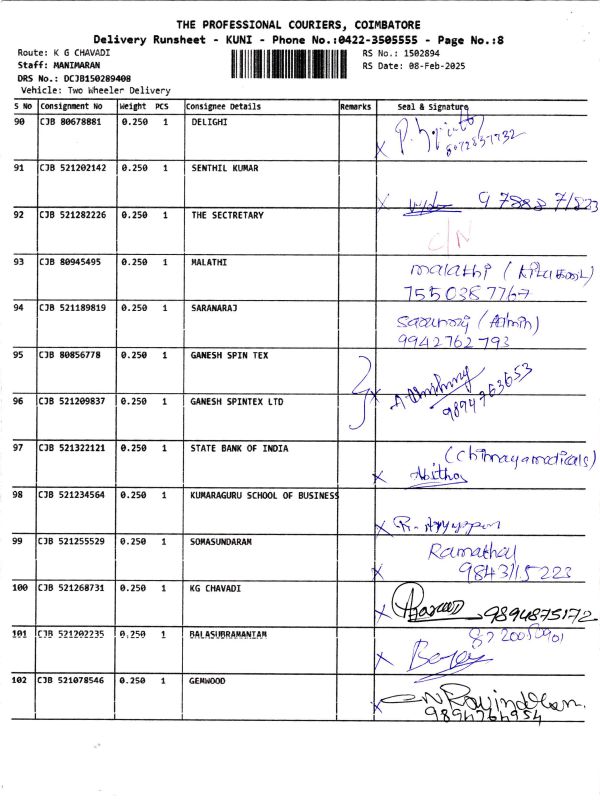 THE PROFESSIONAL COURIERS, COIMBATORE
Delivery Runsheet - KUNI - Phone No.:0422-3505555 - Page No.:8
Route: K G CHAVADI RS No.: 1502894
Staff: MANIMARAN RS Date: 08-Feb-2025
DRS No.: DCJB150289408
Vehicle: Two Wheeler Delivery
S NO Consignment No Weight PCS Consignee Details Remarks Seal & Signature
90 CJB 80678881 0.250 1 DELIGHI
91 CJB 521202142 0.250 1 SENTHIL KUMAR
92 CJB 521282226 0.250 1 THE SECTRETARY
C/N
93 CJB 80945495 0.250 1 MALATHI malathi
7550387767
94 CJB 521189819 0.250 1 SARANARAJ (Admin)
9942762793
95 CJB 80856778 0.250 1 GANESH SPIN TEX
9894763653
96 CJB 521209837 0.250 1 GANESH SPINTEX LTD
97 CJB 521322121 0.250 1 STATE BANK OF INDIA (chinmayamedicals)
Abitha
98 CJB 521234564 0.250 1 KUMARAGURU SCHOOL OF BUSINESS
R-Ayyappan
99 CJB 521255529 0.250 1 SOMASUNDARAM Ramathal
9843115223
100 CJB 521268731 0.250 1 KG CHAVADI
9894875172
101 CJB 521202235 0.250 1 BALASUBRAMANIAM
102 CJB 521078546 0.250 1 GEMWOOD
9894764954